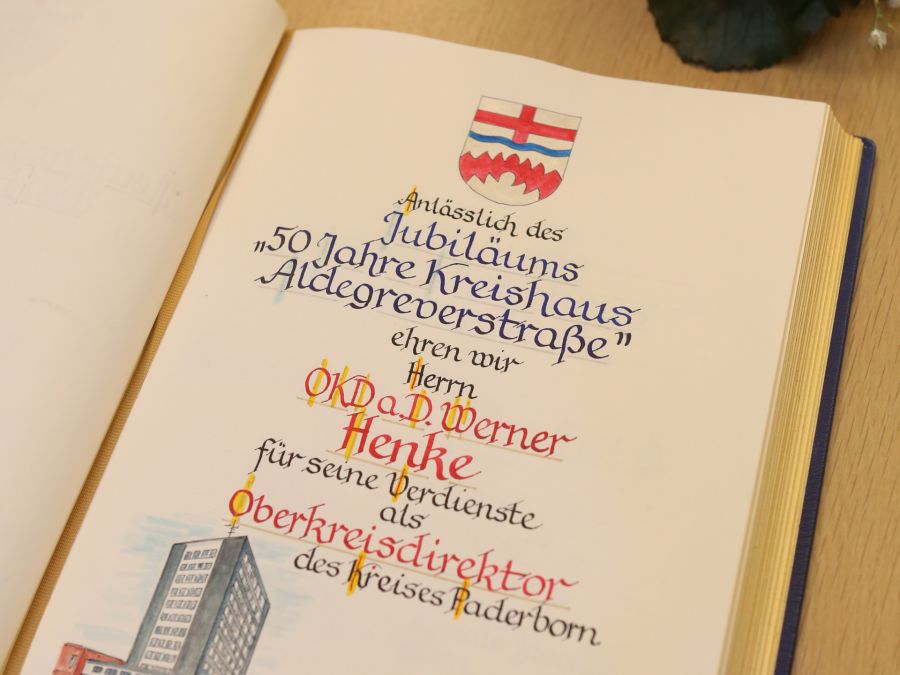 Anlässlich des
Jubiläums
„50 Jahre Kreishaus
Aldegreverstraße”
ehren wir
Herrn
OKD a.D. Werner
Henke
für seine Verdienste
als
Oberkreisdirektor
des Kreises Paderborn